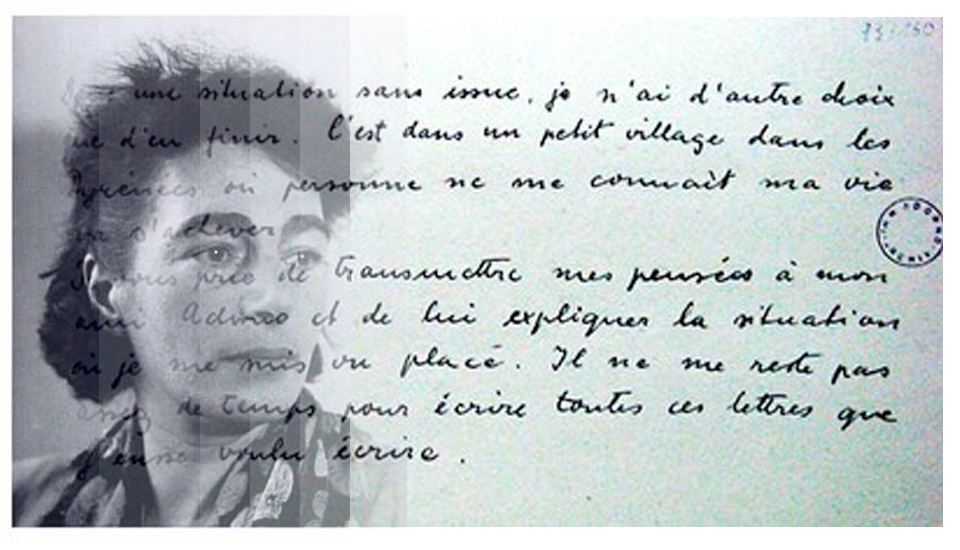 une situation sans issue, je n'ai d'autre choix
que d'en finir. C'est dans un petit village dans les
Pyrénées où personne ne me connaît ma vie
va s'achever.
Je vous prie de transmettre mes pensées à mon
ami Adorno et de lui expliquer la situation
où je me suis vu placé. Il ne me reste pas
assez de temps pour écrire toutes ces lettres que
j'eusse voulu écrire.